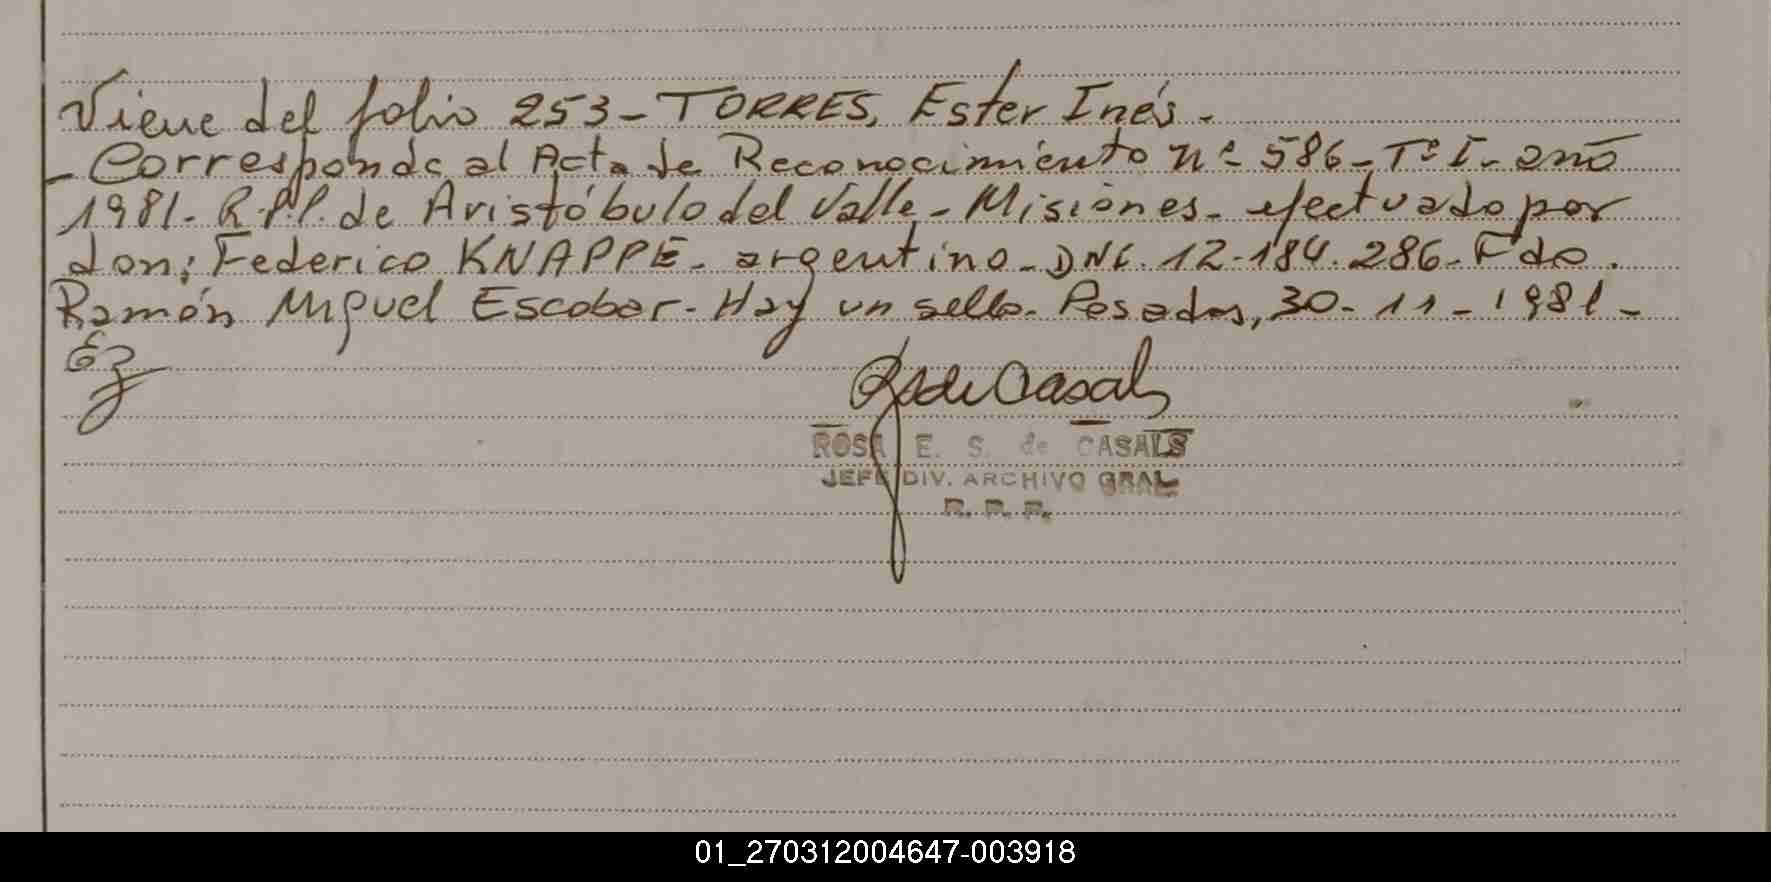 Viene del folio 253 - TORRES, Ester Inés.
- Corresponde al Acta de Reconocimiento nº 586 - Tº I - año
1981 - R.P.P. de Aristóbulo del Valle - Misiones - efectuado por
don: Federico KNAPPE - argentino - DNI. 12.184.286 - Fdo.
Ramón Miguel Escobar - Hay un sello. Posadas, 30 - 11 - 1981 -
ROSA E. S. de CASALS
JEFE DIV. ARCHIVO GRAL
R. P. P.
01_270312004647-003918